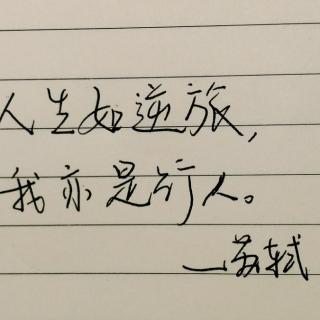 人生如逆旅，
我亦是行人。
—苏轼